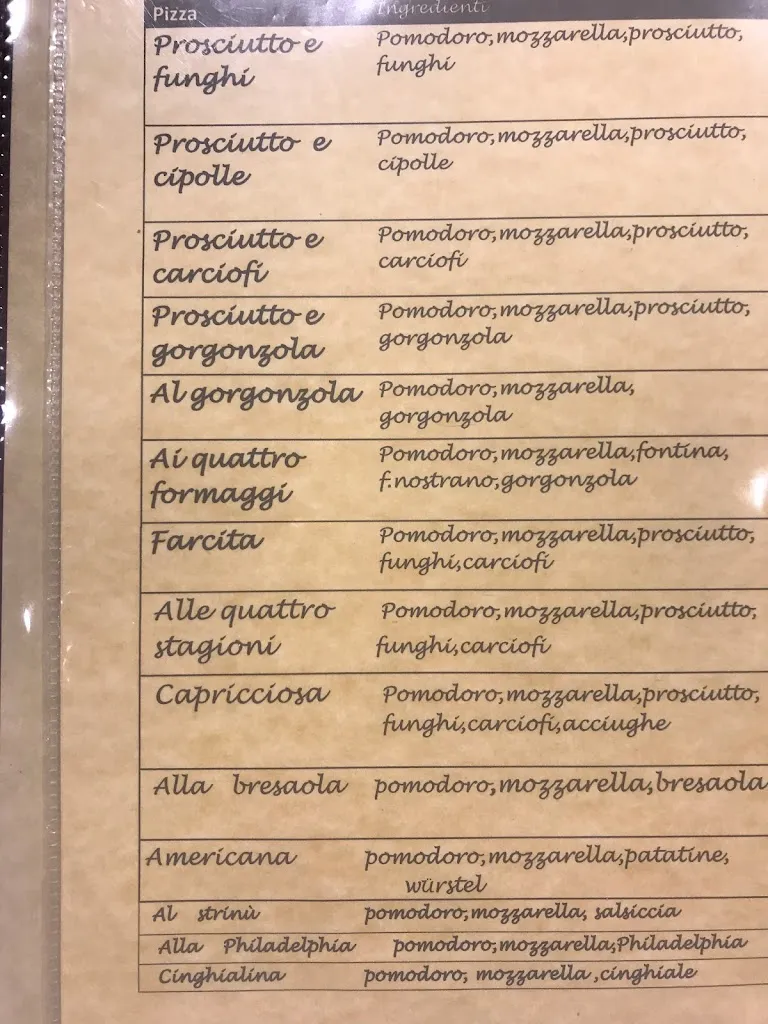 Pizza Ingredienti
Prosciutto e Pomodoro,mozzarella,prosciutto,
funghi funghi
Prosciutto e Pomodoro,mozzarella,prosciutto,
cipolle cipolle
Prosciutto e Pomodoro,mozzarella,prosciutto,
carciofi carciofi
Prosciutto e Pomodoro,mozzarella,prosciutto,
gorgonzola gorgonzola
Al gorgonzola Pomodoro,mozzarella,
gorgonzola
Ai quattro Pomodoro,mozzarella,fontina,
formaggi f.nostrano,gorgonzola
Farcita Pomodoro,mozzarella,prosciutto,
funghi,carciofi
Alle quattro Pomodoro,mozzarella,prosciutto,
stagioni funghi,carciofi
Capricciosa Pomodoro,mozzarella,prosciutto,
funghi,carciofi,acciughe
Alla bresaola pomodoro,mozzarella,bresaola
Americana pomodoro,mozzarella,patatine,
würstel
Al strinù pomodoro,mozzarella, salsiccia
Alla Philadelphia pomodoro,mozzarella,Philadelphia
Cinghialina pomodoro, mozzarella ,cinghiale